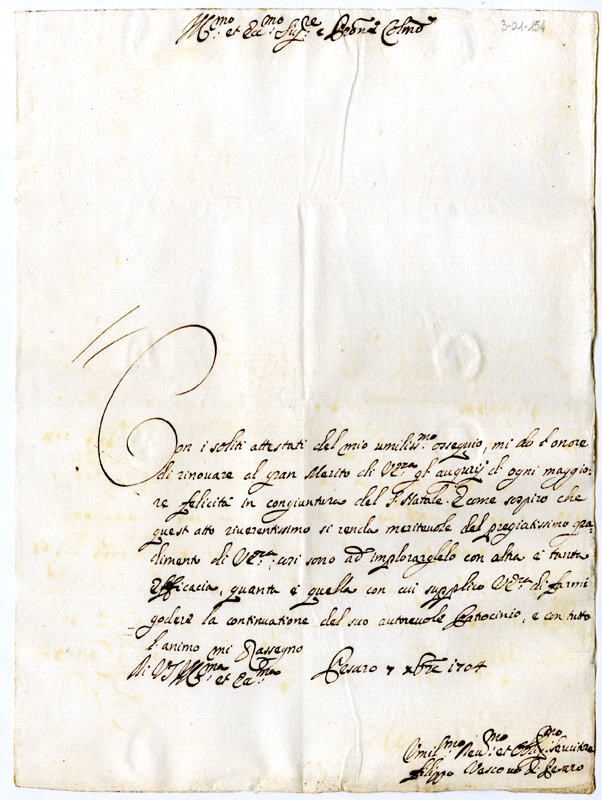 Ill.mo et Ecc.mo Sig.re e Pron Colmo
3-01-154
Con i soliti attestati del mio umiliss.mo ossequio, mi do l'onore
di rinovare al gran Merito di V.
gl'augurij di ogni maggio:
re felicità in congiuntura del S. Natale. E come sospiro che
quest'atto riverentissimo si renda meritevole del pregiatissimo gra:
dimento di V. cosi sono ad implorarglelo con altra e tanta
efficacia, quanta è quella con cui supplico V. di farmi
godere la continuatione del suo autorevole Patrocinio, e con tutto
l'animo mi rassegno
Di V. Ill.ma et Ecc.ma Pesaro 7 Xbre 1704
Umil.mo Dev.mo et Obl.mo Servitore
Filippo Vescovo di Pesaro